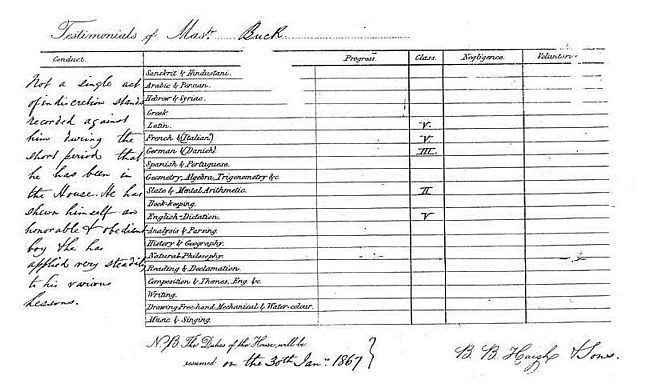 Testimonials of Mast. Buck
Conduct. Progress. Class. Negligence. Volunta
Not a single act
of indiscretion stands
recorded against
him during the
short period that
he has been in
the House. He has
shewn himself an
honorable & obedient
boy & he has
applied very steadily
to his various
lessons.
Sanskrit & Hindustani.
Arabic & Persian.
Hebrew & Syriac.
Greek
Latin. V.
French & (Italian) V.
German & (Danish). III.
Spanish & Portuguese.
Geometry, Algebra, Trigonometry &c
Slate & Mental Arithmetic. II
Book-keeping.
English-Dictation. V
Analysis & Parsing.
History & Geography.
Natural Philosophy.
Reading & Declamation.
Composition & Themes, Eng. &c.
Writing.
Drawing Free-hand Mechanical & Water-colour.
Music & Singing.
N.B The Duties of the House, will be
resumed on the 30th Jany. 1867
B. B. Haigh & Sons.